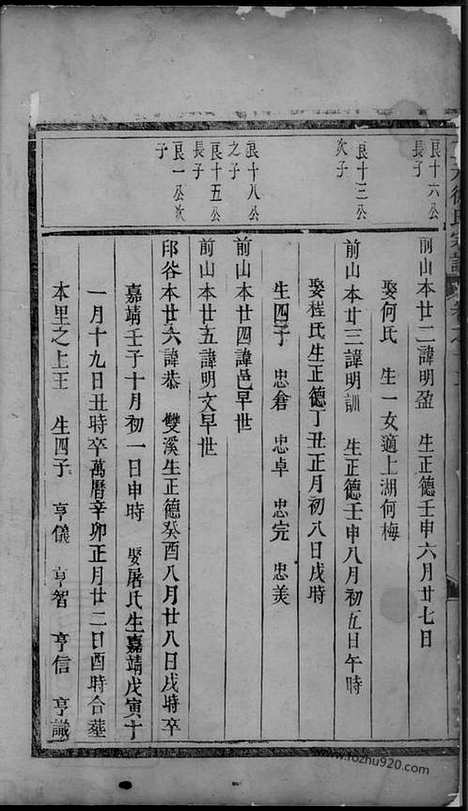 徐氏宗譜
良十六公
長子
前山本廿二諱明盈 生正德壬申六月廿七日
娶何氏 生一女適上湖何梅
良十三公
次子
前山本廿三諱明訓 生正德壬申八月初五日午時
娶程氏生正德丁丑正月初八日戌時
生四子 忠倉 忠卓 忠完 忠美
良十八公
之子
前山本廿四諱邑早世
良十五公
長子
前山本廿五諱明文早世
良一公次
子
印谷本廿六諱恭 雙溪生正德癸酉八月廿八日戌時卒
嘉靖壬子十月初一日申時 娶屠氏生嘉靖戊寅十
一月十九日丑時卒萬曆辛卯正月廿二日酉時合墓
本里之上王 生四子 亨儀 亨智 亨信 亨識
www.fozhu920.com